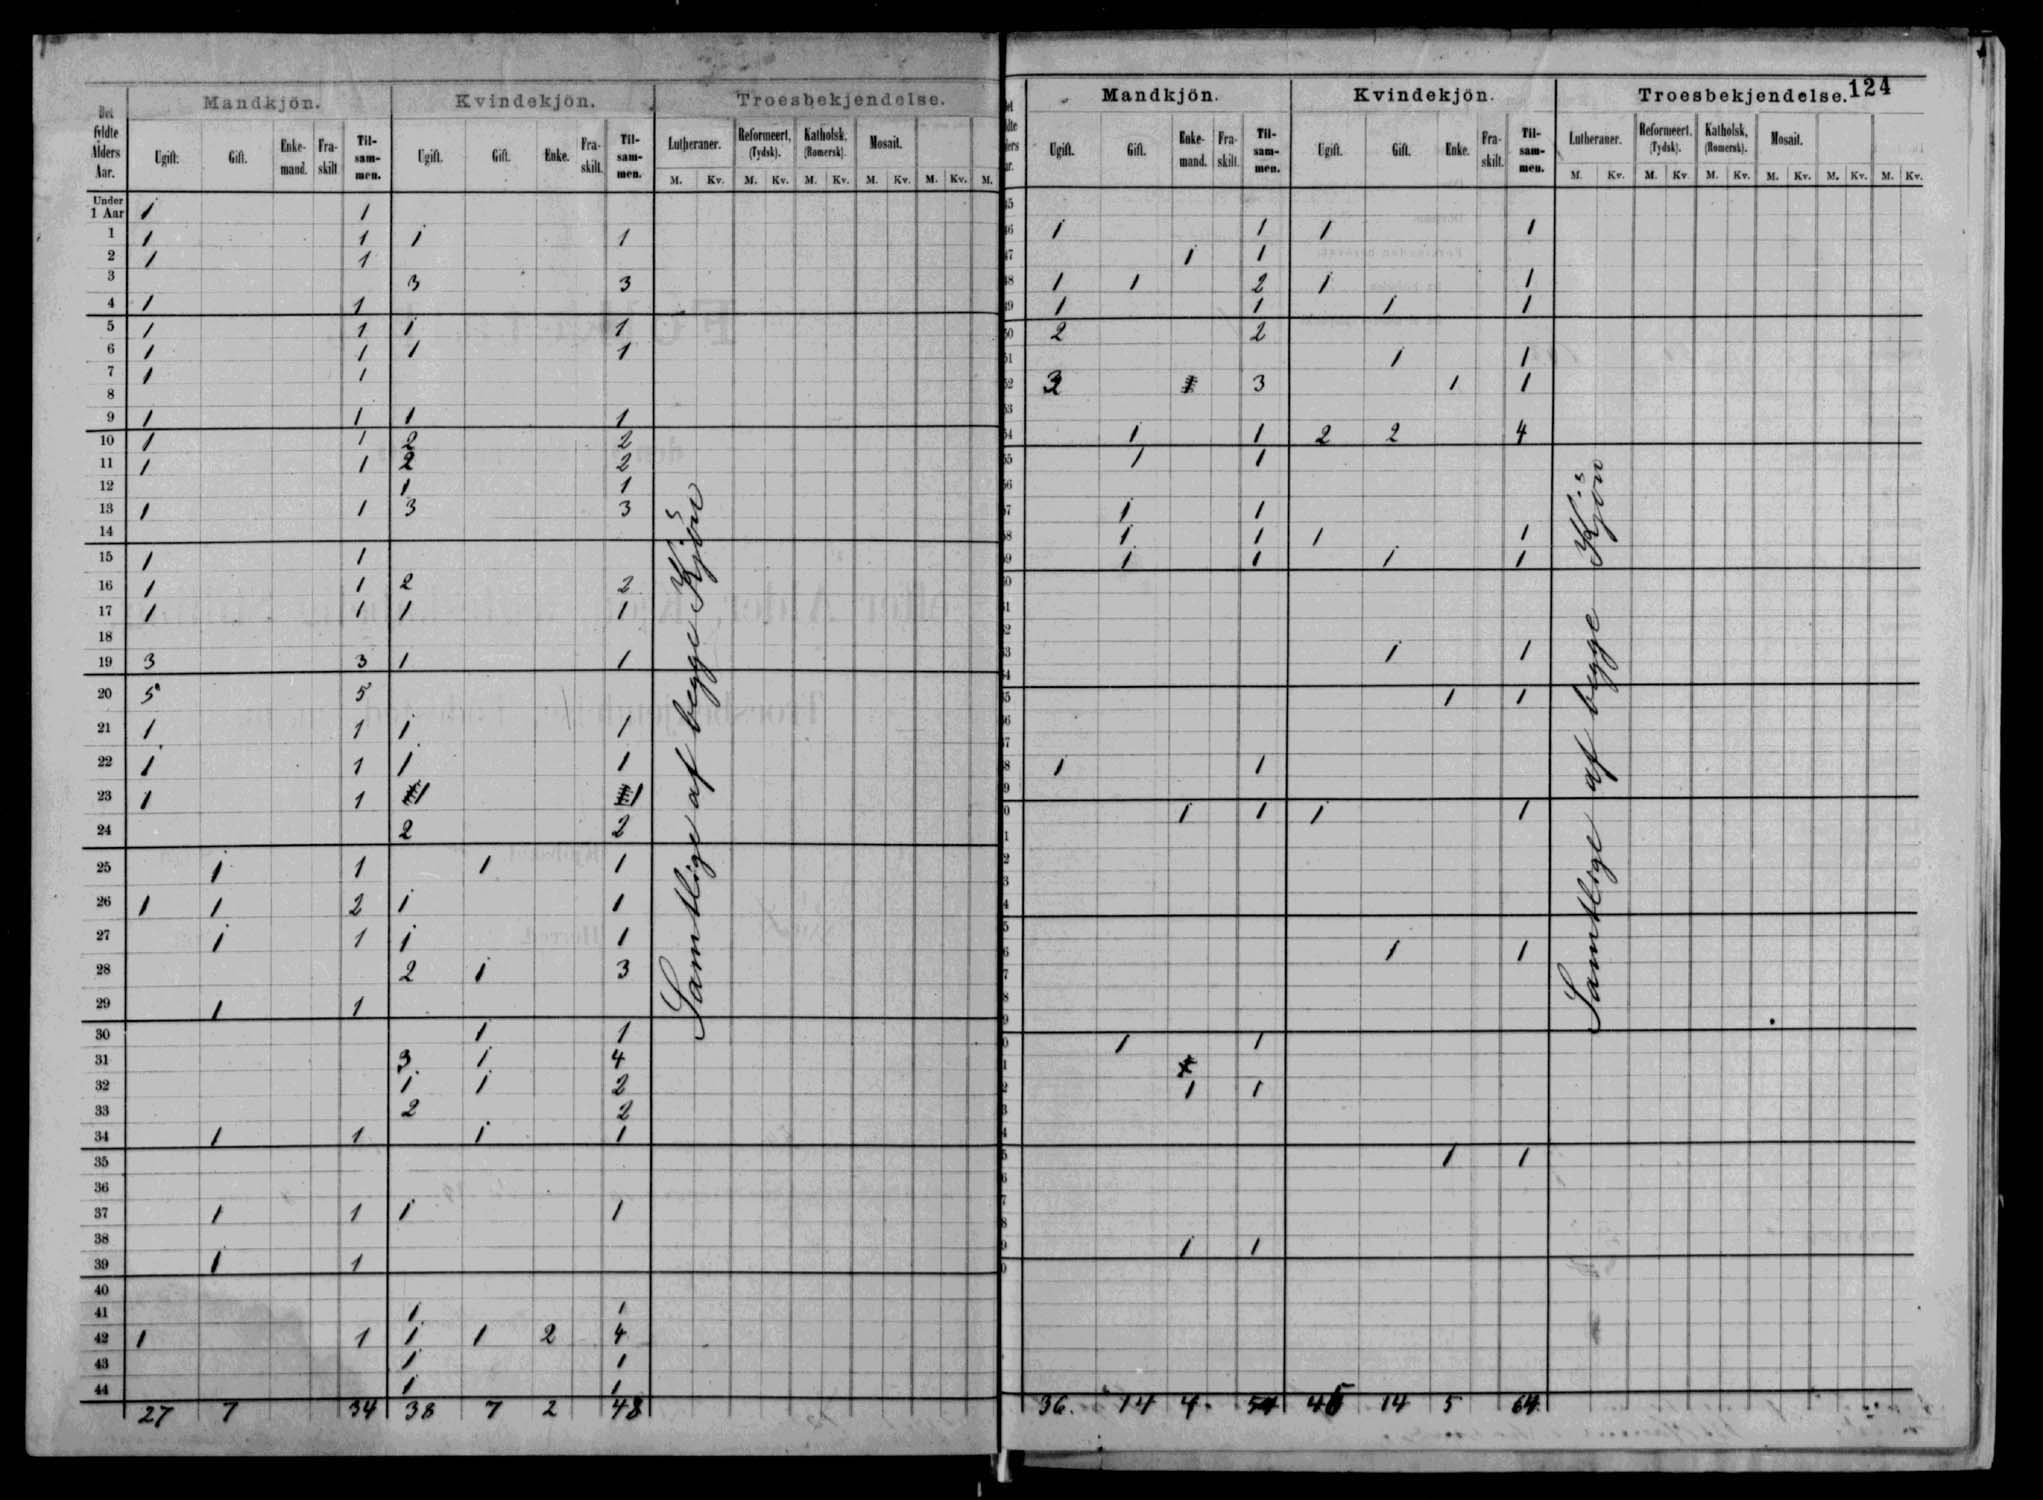 Mandkjön. Kvindekjön. Troesbekjendelse.
Det fyldte Alders Aar. Ugift. Gift. Enke-mand. Fra-skilt Til-sam-men. Ugift. Gift. Enke. Fra-skilt. Til-sam-men. Lutheraner. Reformeert, (Tydsk). Katholsk, (Romersk). Mosait.
M. Kv. M. Kv. M. Kv. M. Kv. M. Kv. M.
Under 1 Aar 1 1
1 1 1 1 1
2 1 1
3 3 3
4 1 1
5 1 1 1 1
6 1 1 1 1
7 1 1
8
9 1 1 1 1
10 1 1 2 2
11 1 1 2 2
12 1 1
13 1 1 3 3
14
15 1 1
16 1 1 2 2
17 1 1 1 1
18
19 3 3 1 1
20 5 5
21 1 1 1 1
22 1 1 1 1
23 1 1 1 1
24 2 2
25 1 1 1 1
26 1 1 2 1 1
27 1 1 1 1
28 2 1 3
29 1 1
30 1 1
31 3 1 4
32 1 1 2
33 2 2
34 1 1 1 1
35
36
37 1 1 1 1
38
39 1 1
40
41 1 1
42 1 1 1 1 2 4
43 1 1
44 1 1
27 7 34 38 7 2 48
Samtlige af begge Kjön
124
Mandkjön. Kvindekjön. Troesbekjendelse.
Ugift. Gift. Enke-mand. Fra-skilt. Til-sam-men. Ugift. Gift. Enke. Fra-skilt. Til-sam-men. Lutheraner. Reformeert. (Tydsk). Katholsk, (Romersk). Mosait.
M. Kv. M. Kv. M. Kv. M. Kv. M. Kv. M. Kv.
5
6 1 1 1 1
7 1 1
8 1 1 2 1 1
9 1 1 1 1
0 2 2
1 1 1
2 3 3 1 1
3
4 1 1 2 2 4
5 1 1
6
7 1 1
8 1 1 1 1
9 1 1 1 1
0
1
2
3 1 1
4
5 1 1
6
7
8 1 1
9
0 1 1 1 1
1
2
3
4
5
6 1 1
7
8
9
0 1 1
1
2 1 1
3
4
5 1 1
6
7
8
9 1 1
0
36. 14 4. 54 45 14 5 64
Samtlige af begge Kjön